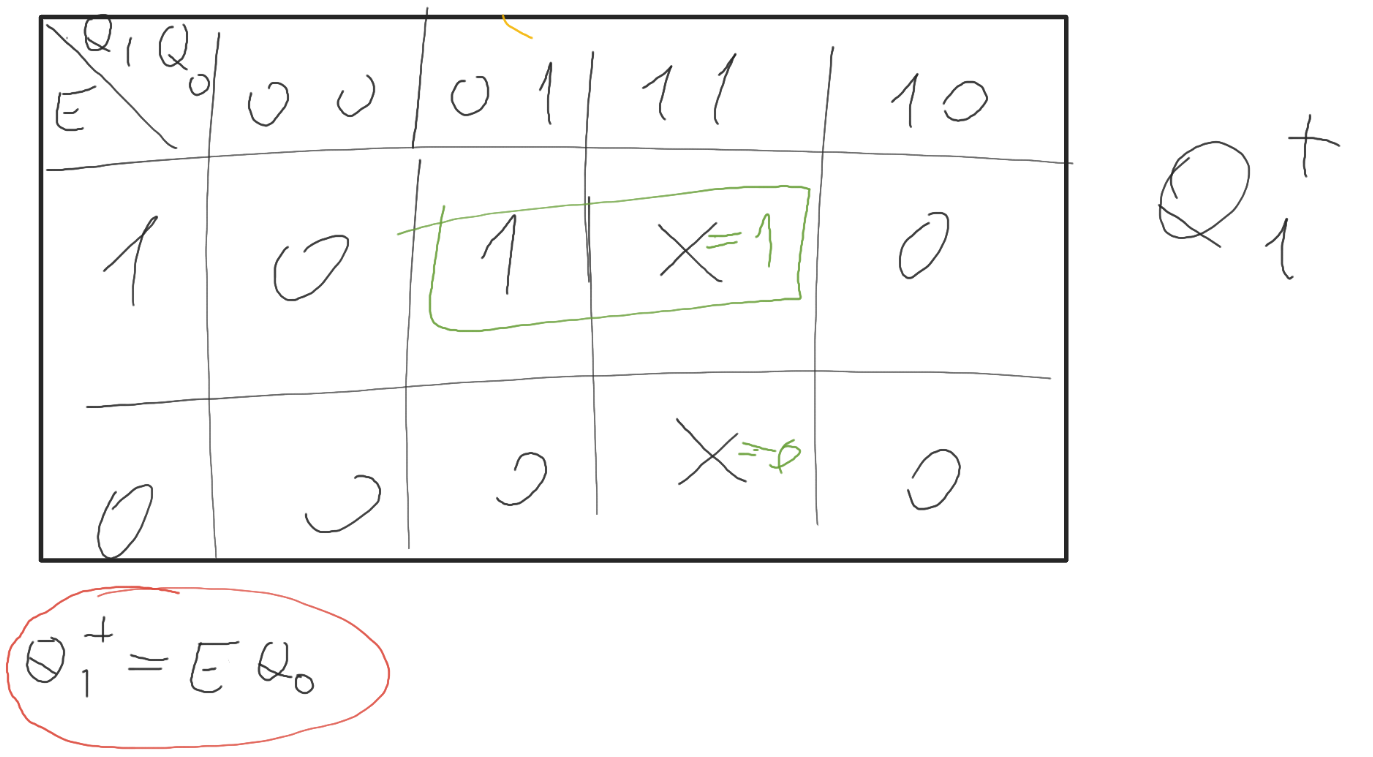 Q₁ Q₀
E 0 0 0 1 1 1 1 0
1 0 1 X=1 0
0 0 0 X=0 0
Q₁⁺
Q₁⁺ = E Q₀